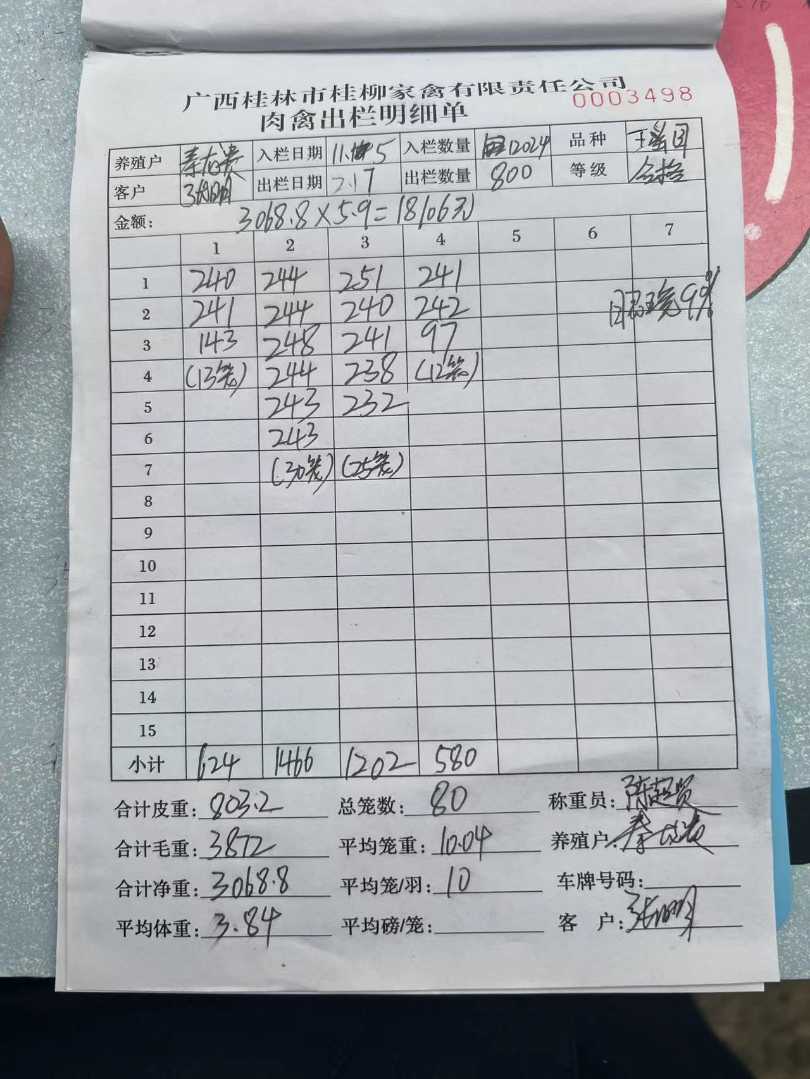 广西桂林市桂柳家禽有限责任公司
肉禽出栏明细单
0003498
养殖户 入栏日期 11. 5 入栏数量 12024 品种
客户 出栏日期 2.17 出栏数量 800 等级 合格
金额: 3068.8×5.9=18106元
1 2 3 4 5 6 7
1 240 244 251 241
2 241 244 240 242 99%
3 143 248 241 97
4 (13笼) 244 238 (12笼)
5 243 232
6 243
7 (30笼) (25笼)
8
9
10
11
12
13
14
15
小计 624 1466 1202 580
合计皮重: 803.2 总笼数: 80 称重员: 陈超贤
合计毛重: 3872 平均笼重: 10.04 养殖户:
合计净重: 3068.8 平均笼/羽: 10 车牌号码:
平均体重: 3.84 平均磅/笼: 客 户: 张明